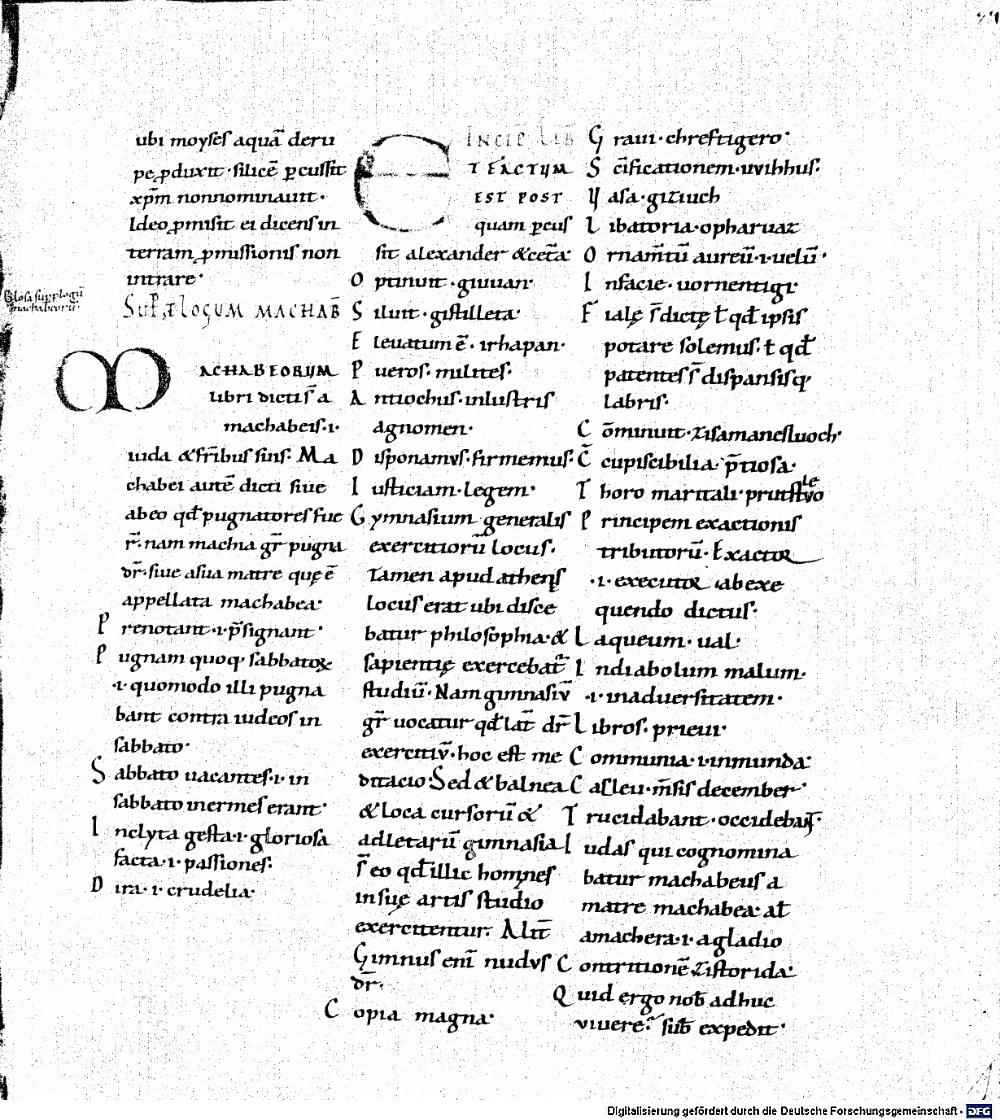 ubi moyses aquā deru
pe ꝓduxit · silicē ꝑcussit
xp̄m nonnominauit ·
Ideo ꝓmisit ei dicens in
terram ꝓmissionis non
intrare ·
SUPꝐLOGUM MACHAB̄
Glosa sup ꝓlogū
machabeorū
MACHABEORUM
libri dicti s̄ a
machabeis · i ·
iuda & fr̄ibus suis · Ma
chabei autē dicti siue
ab eo qđ pugnatores fue
r̄ · nam machia gr̄ pugna
dr̄ · siue a sua matre quę ē
appellata machabea ·
Prenotant · i · p̄signant ·
Pugnam quoq; sabbatoꝝ
· i · quomodo illi pugna
bant contra iudeos in
sabbato ·
Sabbato uacantes · i · in
sabbato inermes erant ·
Inclyta gesta · i · gloriosa
facta · i · passiones ·
Dira · i · crudelia ·
INCIP̄ LIB̄
ET FACTUM
EST POST
quam ꝑcus
sit alexander & cet̄a ·
Optinuit · giuuan ·
Siluit · gistilleta ·
Eleuatum ē · irhapan ·
Pueros · milites ·
Antiochus · inlustris
agnomen ·
Disponamus · firmemus ·
Iusticiam · legem ·
Gymnasium generalis
exercitiorū locus ·
Tamen apud athenis
locus erat ubi disce
batur philosophia · &
sapientię exercebat̄
studiū · Nam gimnasiū
gr̄ uocatur qđ lat̄ dr̄
exercitiū · hoc est me
ditacio · Sed & balnea
& loca cursorū &
adletarū gimnasia
s̄ eo qđ illic homines
in suę artis studio
exercitentur · Alit̄
Gimnus eni nudus
dr̄ ·
Copia magna ·
Graui · chreftigero ·
Sc̄ificationem · uvihhus ·
Vasa · giziuch
Libatoria · opharuaz
Ornam̄tū aureū · i · uelū ·
In facie · uornentigi
Fialę s̄ dictę ł qđ ipsis
potare solemus · ł qđ
patentes s̄ dispansisq;
labris ·
Cōminuit · zisamanesluoch ·
C̄cupiscibilia · p̄tiosa ·
Thoro maritali · prutstuole
Principem exactionis
tributorū · Exactor
· i · executor ab exe
quendo dictus ·
Laqueum · ual ·
In diabolum malum ·
· i · in aduersitatem ·
Libros · prieui ·
Communia · i · inmunda ·
Casleu · m̄sis december ·
Trucidabant · occidebant ·
Iudas qui cognomina
batur machabeus a
matre machabea · ał
a machera · i · a gladio
Contritionē zistorida ·
Quid ergo nob̄ adhuc
uiuere · sub̄ expedit ·
Digitalisierung gefördert durch die Deutsche Forschungsgemeinschaft · DFG